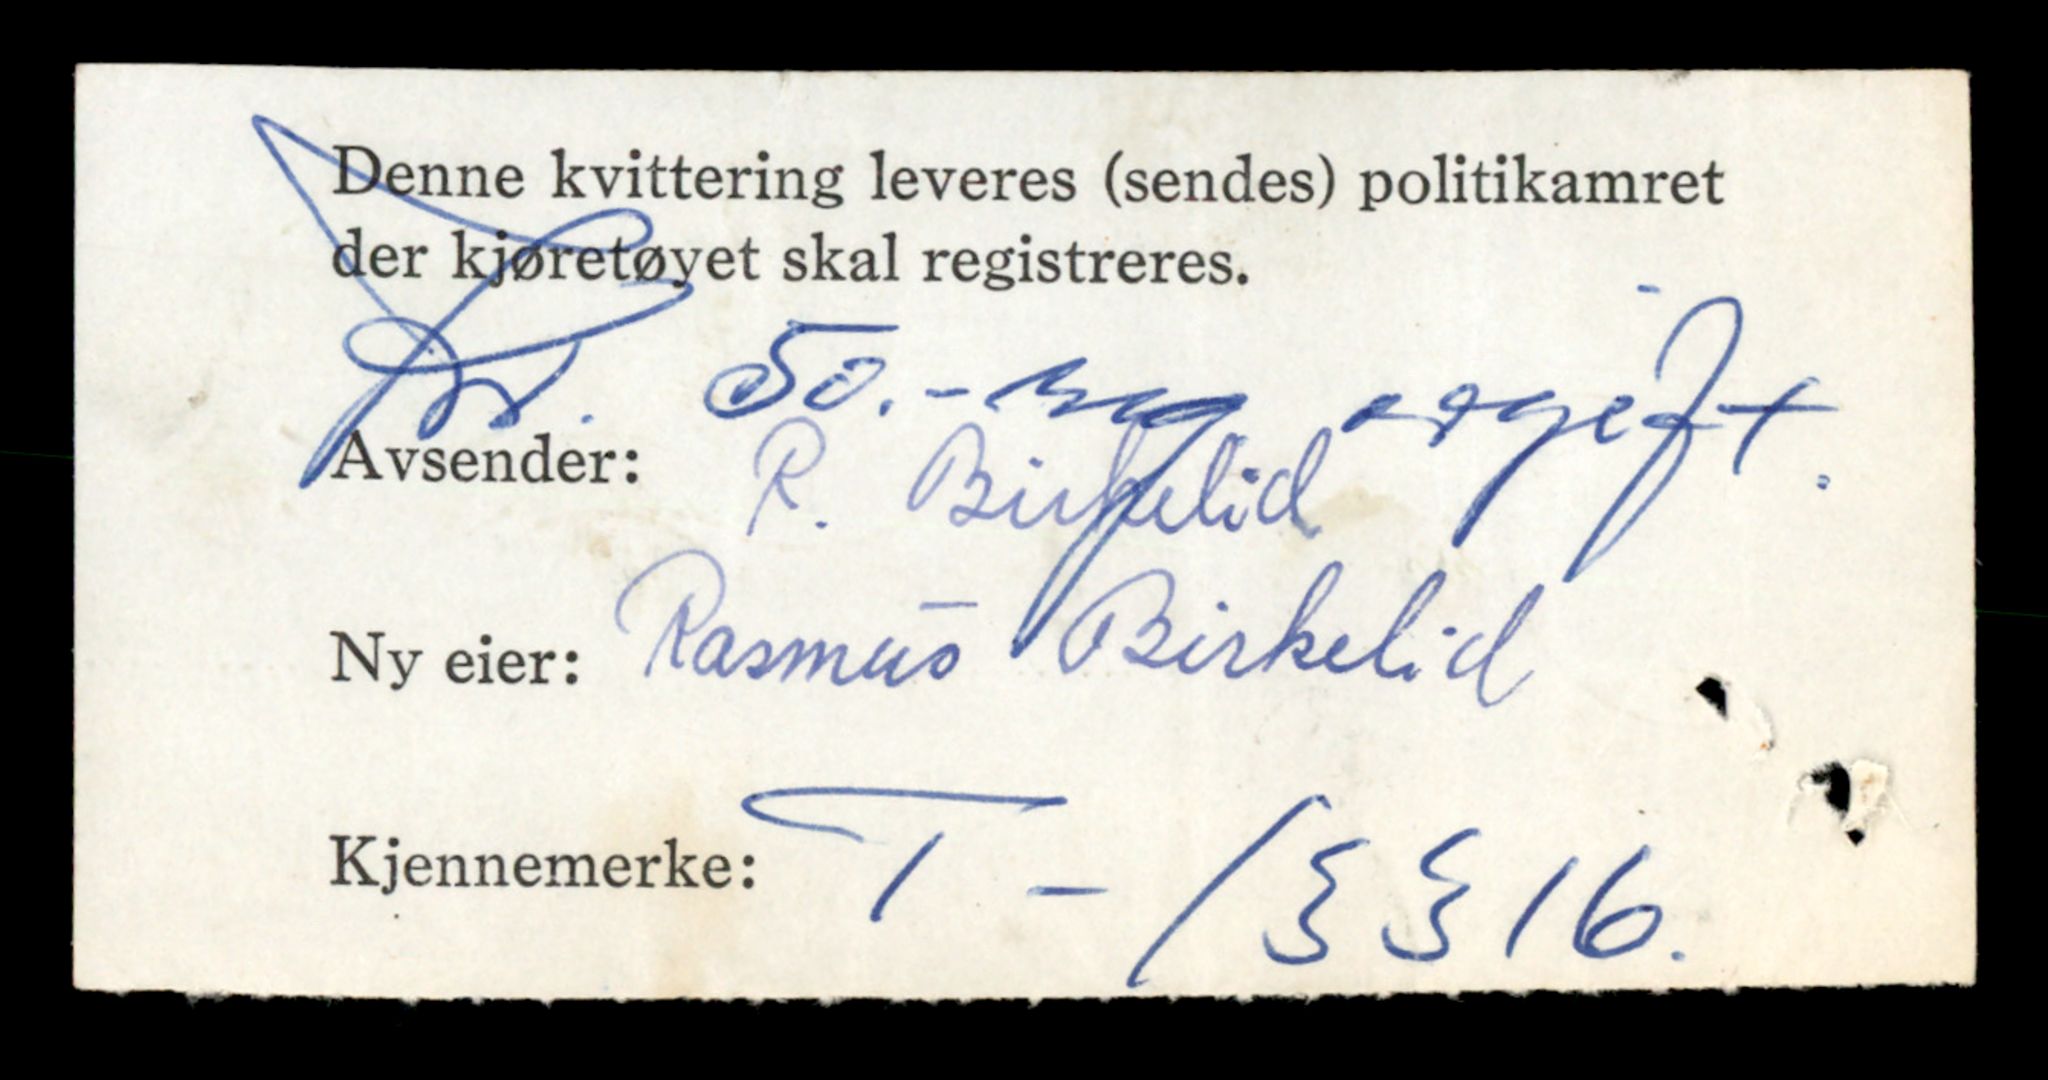 Denne kvittering leveres (sendes) politikamret
der kjøretøyet skal registreres.
Kr. 50.- avgift.
Avsender: R. Birkelid
Ny eier: Rasmus Birkelid
Kjennemerke: T-13316.